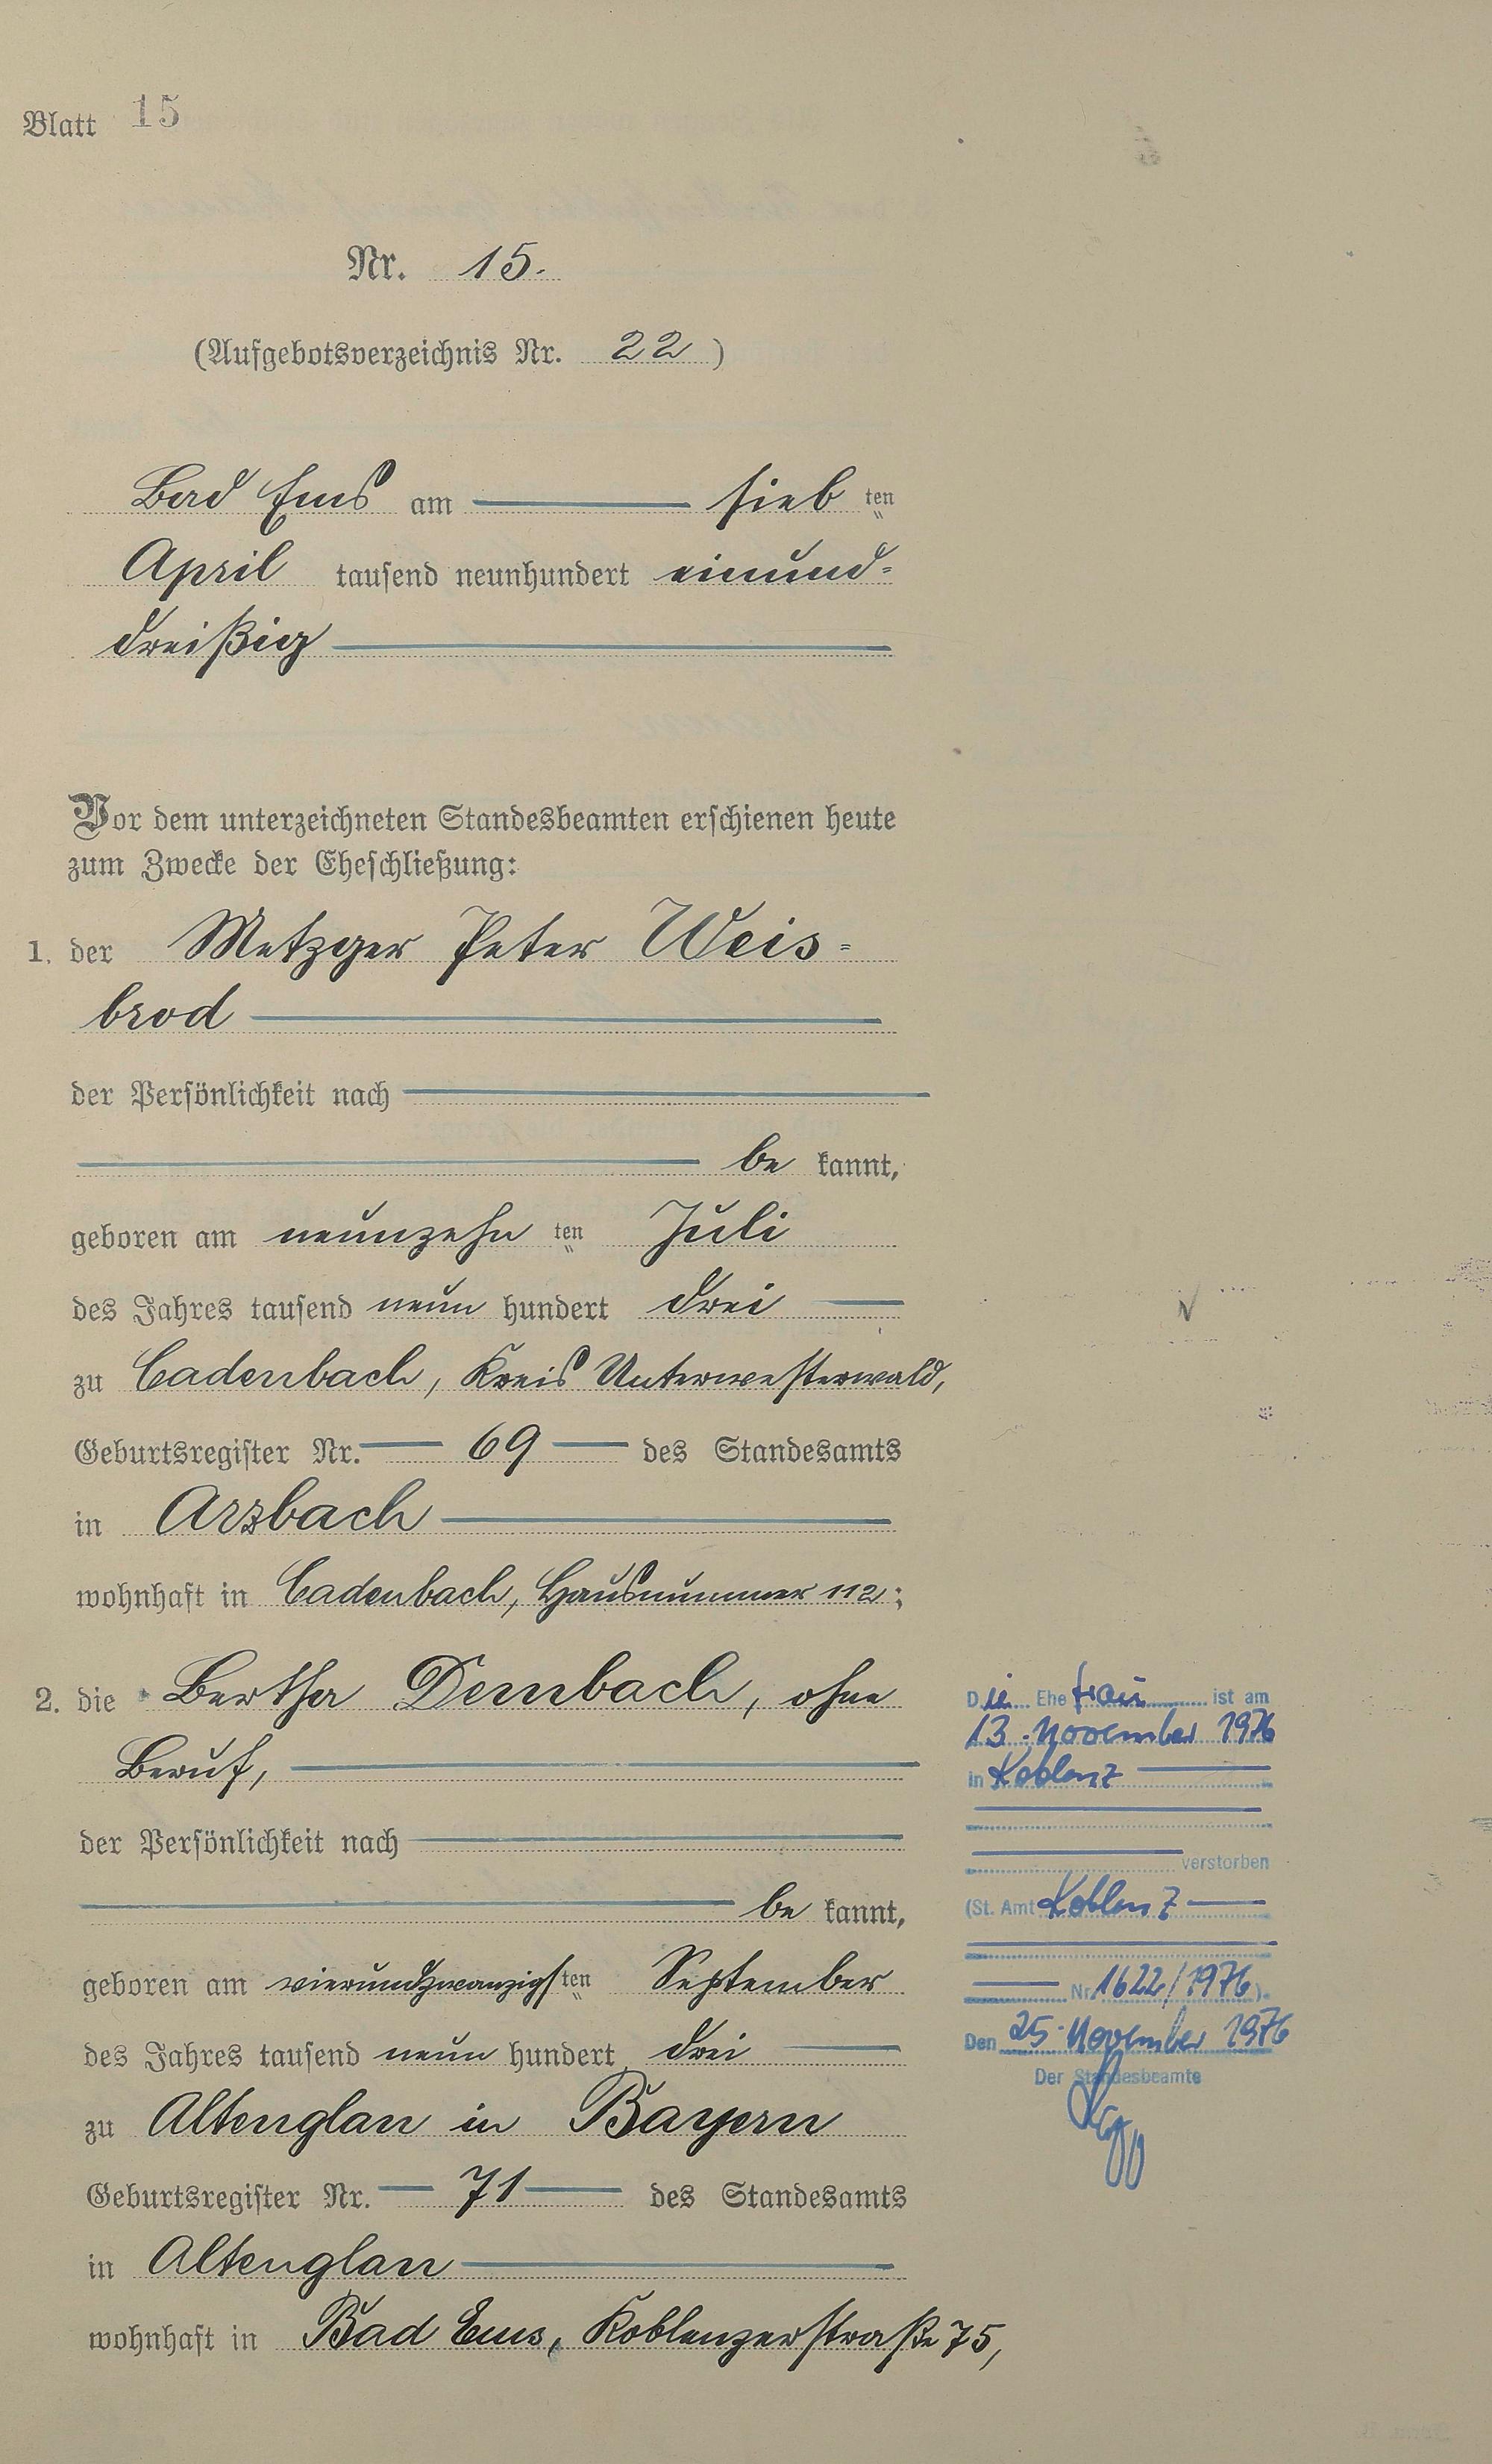 Blatt 15
Nr. 15.
(Aufgebotsverzeichnis Nr. 22)
Bad Ems am sieb ten
April tausend neunhundert einund=
dreißig
Vor dem unterzeichneten Standesbeamten erschienen heute
zum Zwecke der Eheschließung:
1. der Metzger Peter Weis=
brod
der Persönlichkeit nach
be kannt,
geboren am neunzehn ten Juli
des Jahres tausend neun hundert drei
zu Cadenbach, Kreis Unterwesterwald,
Geburtsregister Nr. 69 des Standesamts
in Arzbach
wohnhaft in Cadenbach, Hausnummer 112;
2. die Bertha Dernbach, ohne
Beruf,
der Persönlichkeit nach
be kannt,
geboren am vierundzwanzigs ten September
des Jahres tausend neun hundert drei
zu Altenglan in Bayern
Geburtsregister Nr. 71 des Standesamts
in Altenglan
wohnhaft in Bad Ems, Koblenzerstraße 75,
Die Ehefrau ist am
13. November 1976
in Koblenz
verstorben
(St. Amt Koblenz
Nr. 1622/1976).
Den 25. November 1976
Der Standesbeamte